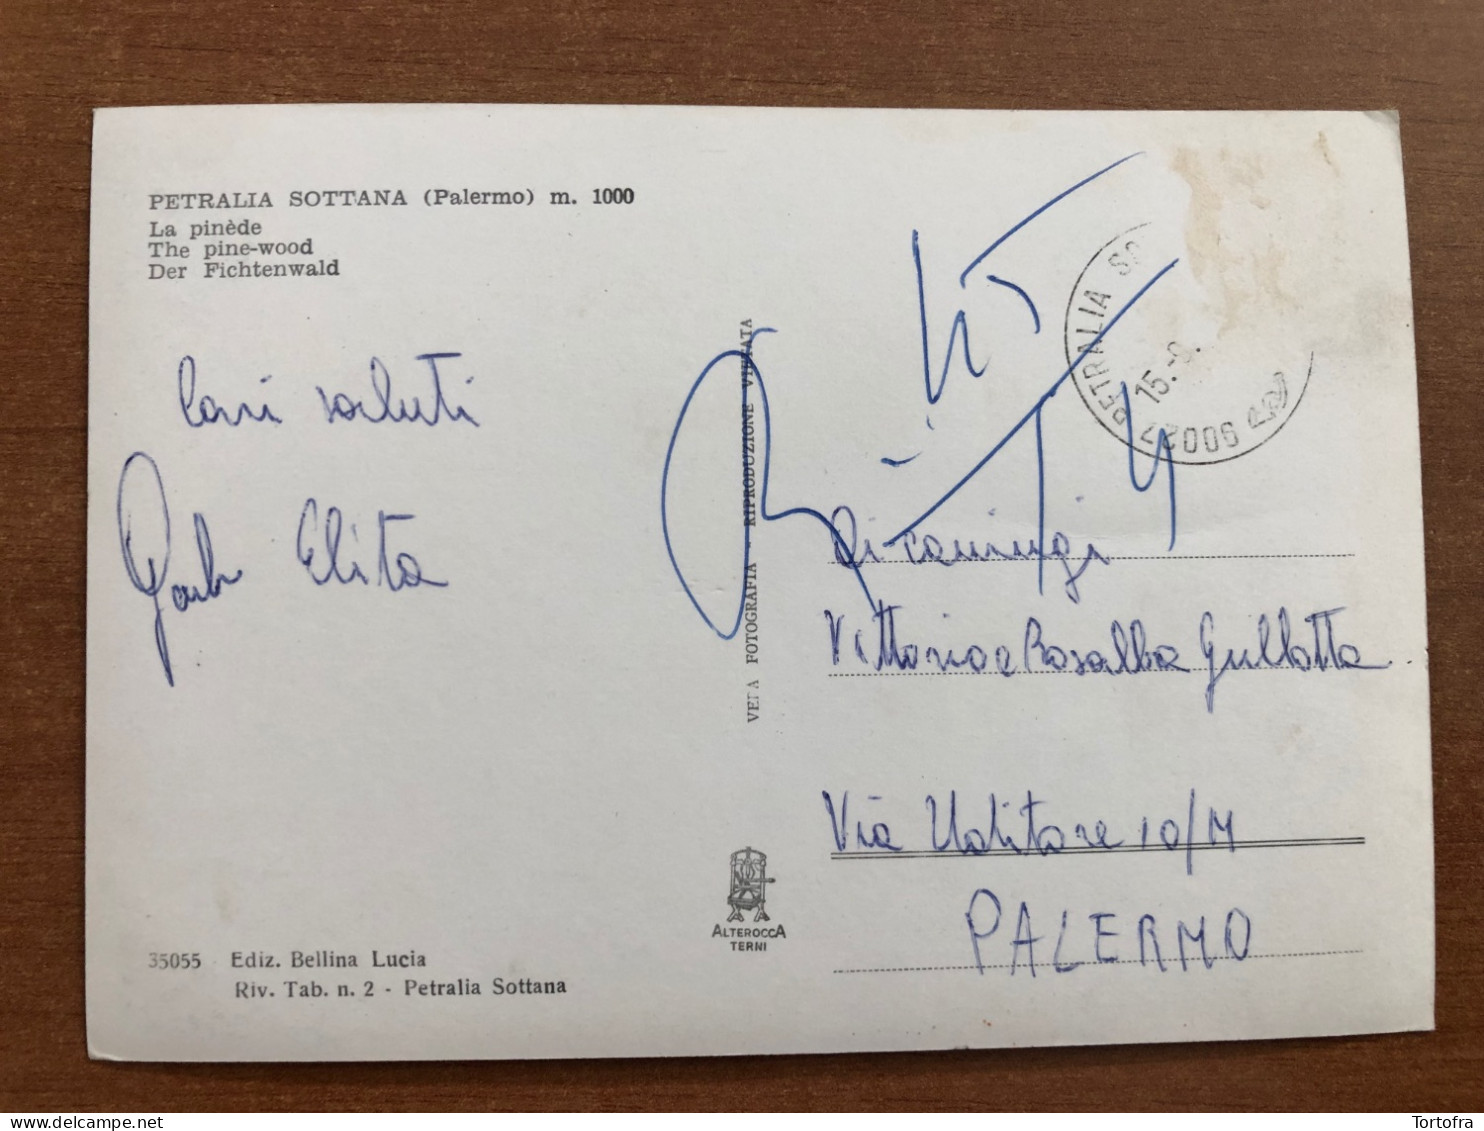 PETRALIA SOTTANA (Palermo) m. 1000
La pinède
The pine-wood
Der Fichtenwald
Cari saluti
Elita
VERA FOTOGRAFIA - RIPRODUZIONE VIETATA
PETRALIA SO
15.-8.
90027
Vittorio e Rosalba Gullotta
Via Uditore 10/M
PALERMO
ALTEROCCA
TERNI
35055 Ediz. Bellina Lucia
Riv. Tab. n. 2 - Petralia Sottana
delcampe.net
Tortofra